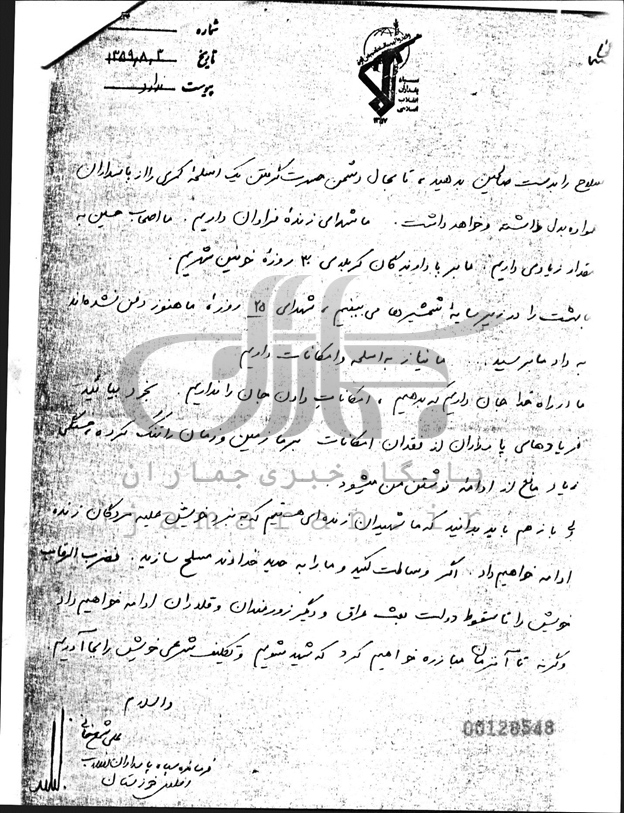 شماره
تاریخ ۱۳۵۹,۸,۳
پیوست ندارد
سپاه
پاسداران
انقلاب
اسلامی
۱۳۵۷
سلاح را بدست صالحین بدهید، تا بحال دشمن حسرت گرفتن یک اسلحه کمری را از پاسداران
بدل داشته و خواهد داشت. ما شهدای زنده فراوان داریم. ما اصحاب حسین به
مقدار زیادی داریم. ما بیاد آورندگان کربلای ۳۰ روزه خونین شهریم.
ما بهشت را در زیر سایه شمشیرها می بینیم، شهدای ۲۵ روزه ما هنوز دفن نشده‌اند
به داد ما برسید... ما نیاز به اسلحه و امکانات داریم
ما در راه خدا جان داریم که بدهیم، امکانات دادن جان را نداریم.
فریادهای پاسداران از فقدان امکانات بر ما زمین و زمان را تنگ کرده، خستگی
زیاد مانع از ادامه نوشتن من میشود.
ولی باز هم باید بدانید که ما شهیدان زنده‌ای هستیم که به نبرد خویش علیه مردگان زنده
ادامه خواهیم داد. اگر وساطت کنید و ما را به حدید خداوند مسلح سازید. فضرب الرقاب
خویش را تا سقوط دولت بعث عراق و دیگر زورمندان و قلدران ادامه خواهیم داد
وگرنه تا آنزمان مبارزه خواهیم کرد که شهید شویم و تکلیف شرعی خویش را بجا آوریم
والسلام
علی شمخانی
فرمانده سپاه پاسداران انقلاب
اسلامی خوزستان
00128548
جماران
پایگاه خبری جماران
jamaran.ir